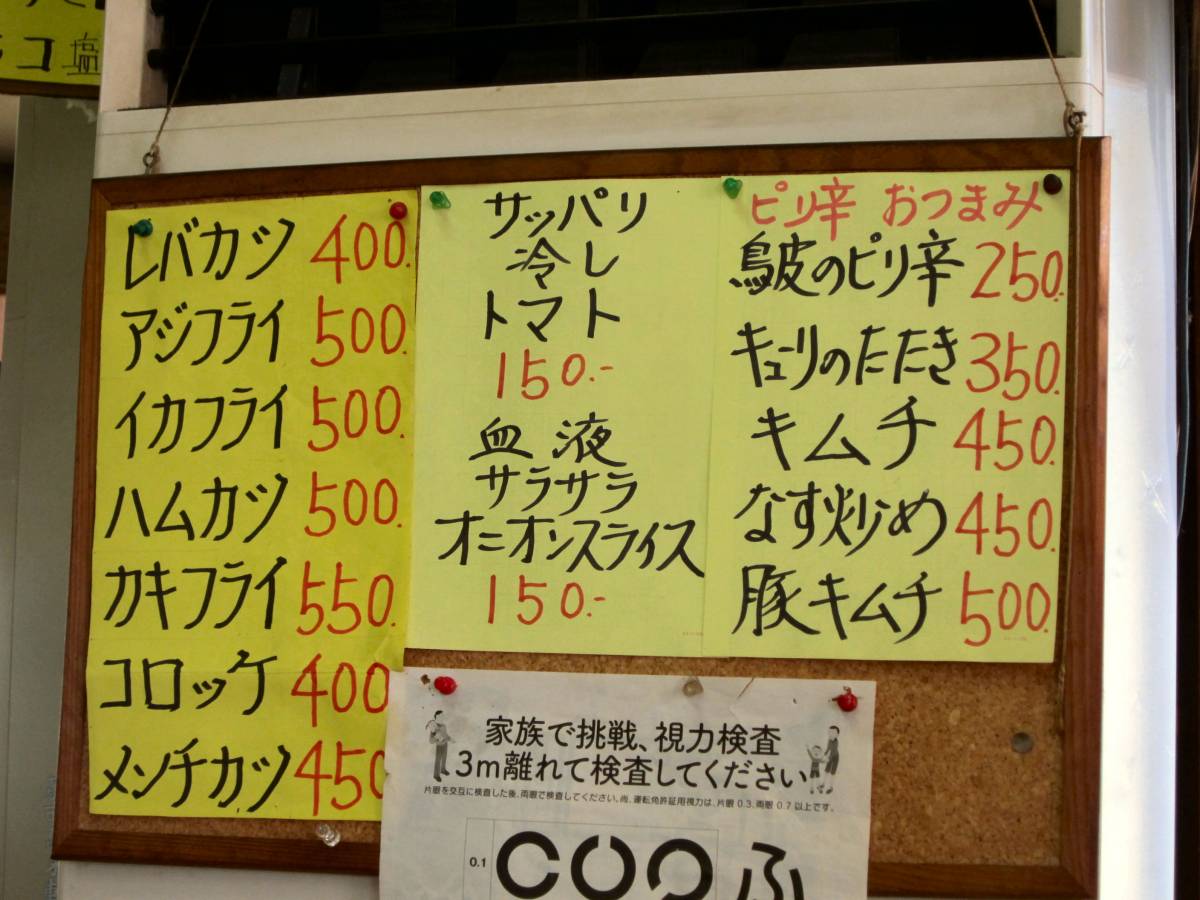 コ塩
レバカツ 400.
アジフライ 500.
イカフライ 500.
ハムカツ 500.
カキフライ 550.
コロッケ 400
メンチカツ 450
サッパリ
冷し
トマト
150.-
血液
サラサラ
オニオンスライス
150.-
ピリ辛 おつまみ
鳥皮のピリ辛 250.
キューリのたたき 350.
キムチ 450.
なす炒め 450.
豚キムチ 500.
家族で挑戦、視力検査
3m離れて検査してください
片眼を交互に検査した後、両眼で検査してください。尚、運転免許証用視力は、片眼 0.3、両眼 0.7 以上です。
0.1 ふ